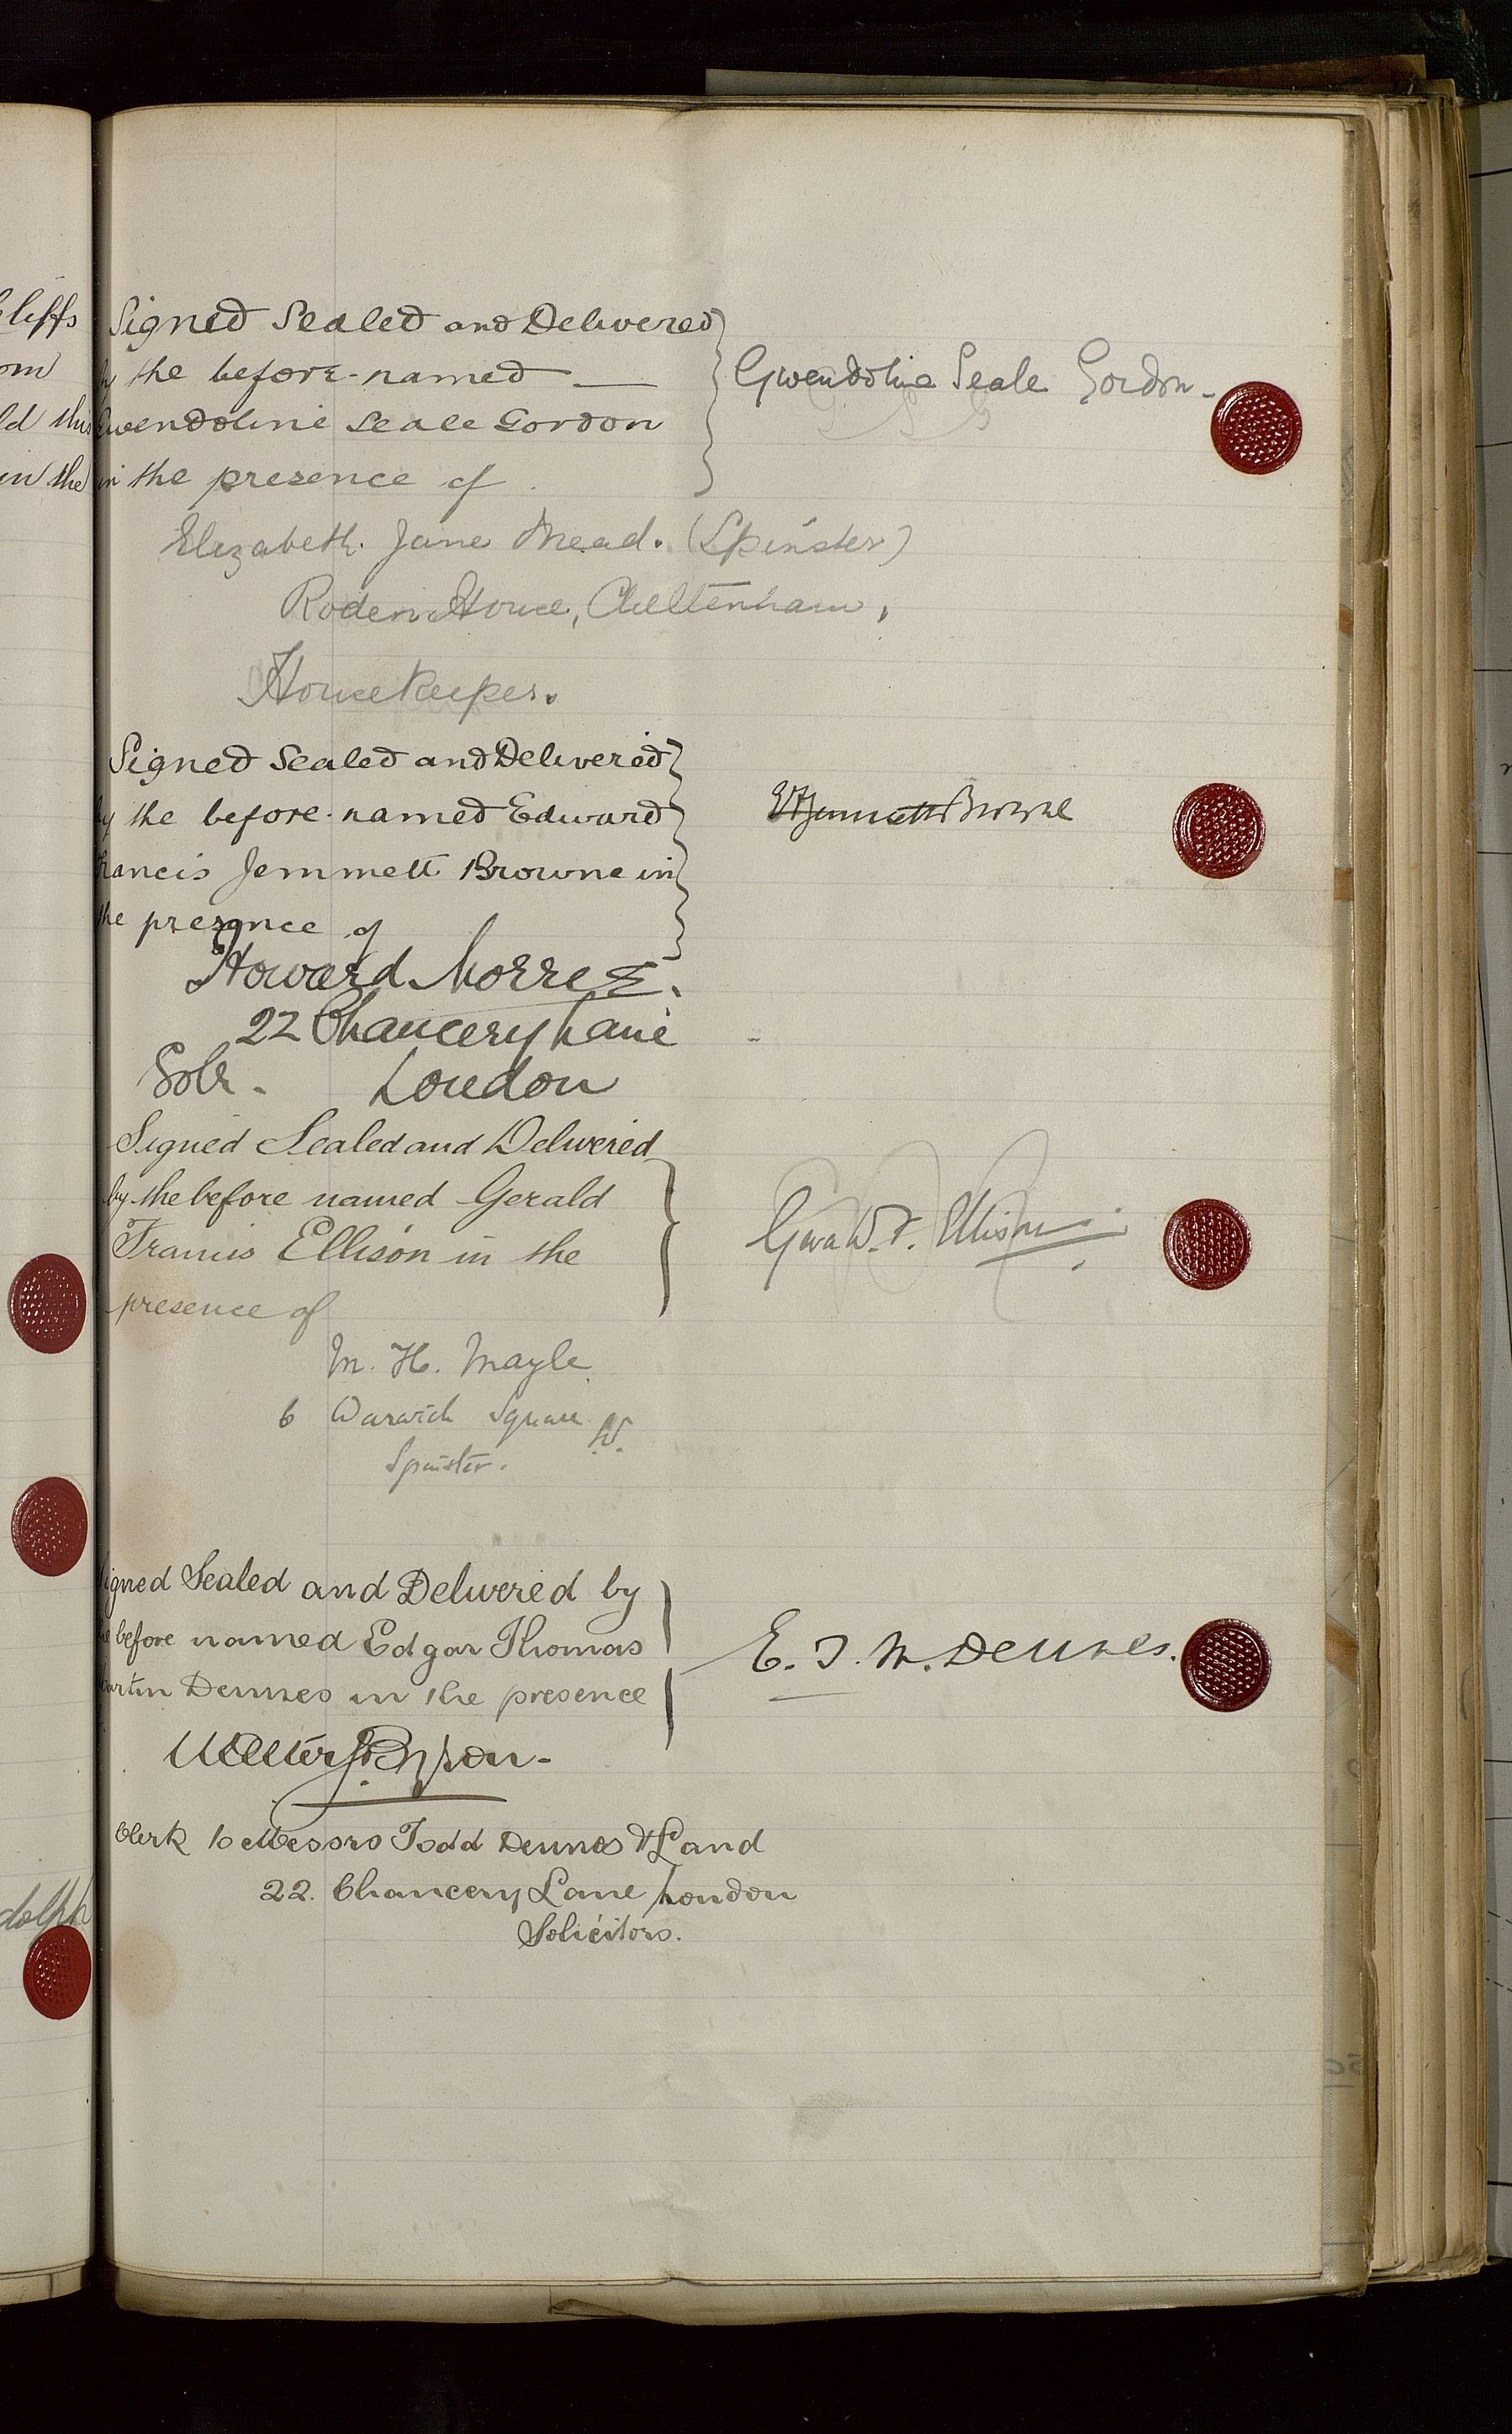 Signed Sealed and Delivered
by the before-named
Gwendoline Seale Gordon
in the presence of
Gwendoline Seale Gordon
Elizabeth Jane Mead. (Spinster)
Roden House, Cheltenham,
Housekeeper.
Signed Sealed and Delivered
by the before-named Edward
Francis Jemmett Browne in
the presence of
EFJemmett Browne
Howard Morris.
22 Chancery Lane
Solr. London
Signed Sealed and Delivered
by the before named Gerald
Francis Ellison in the
presence of
Gerald F. Ellison
M. H. Mayle
6 Warwick Square
W.
Spinster.
Signed Sealed and Delivered by
the before named Edgar Thomas
Martin Dennes in the presence
E. T. M. Dennes.
Clerk to Messrs Todd Dennes & Land
22. Chancery Lane London
Solicitors.
cliffs
om
ld this
in the
dolph